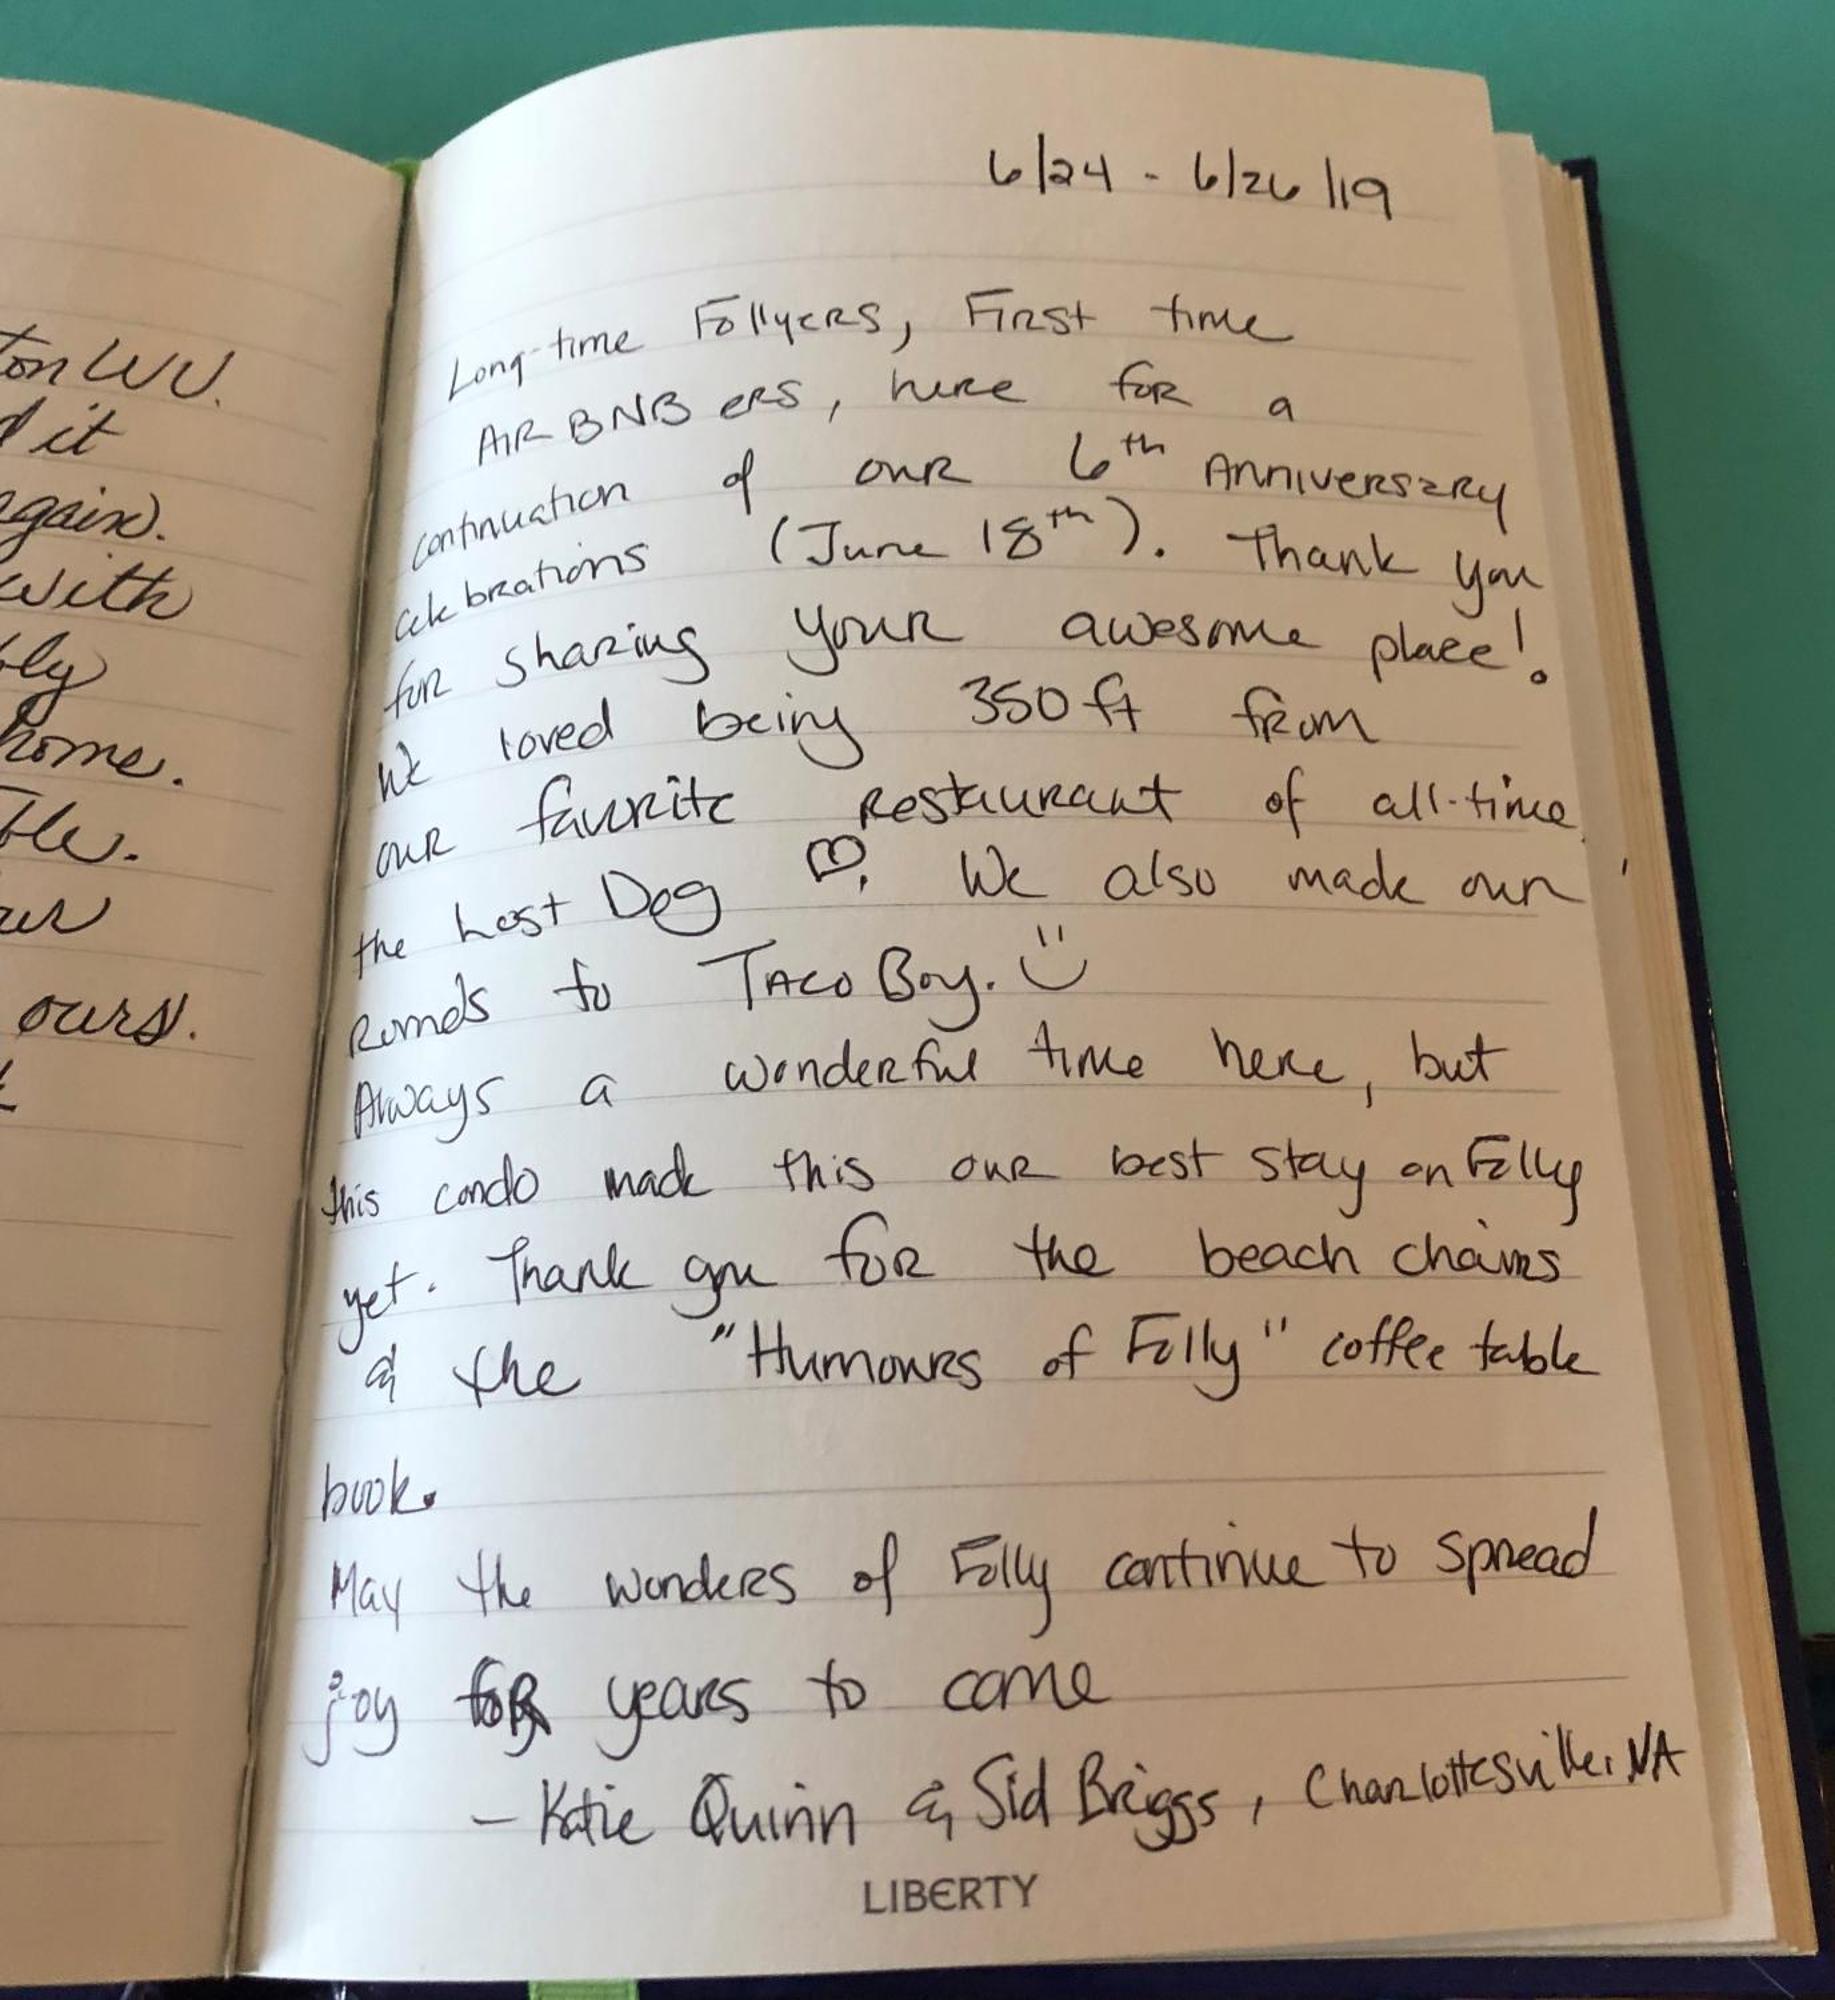 ton WV.
it
again.
with
home.
ours.
6/24 - 6/26/19
Long-time Follyers, First time
AIRBNBers, here for a
continuation of our 6th Anniversary
celebrations (June 18th). Thank you
for sharing your awesome place!
We loved being 350 ft from
our favorite Restaurant of all-time,
the Lost Dog ♡. We also made our
Rounds to Taco Boy. :)
Always a wonderful time here, but
this condo made this our best stay on Folly
yet. Thank you for the beach chairs
& the "Humours of Folly" coffee table
book.
May the wonders of Folly continue to spread
joy for years to come
- Katie Quinn & Sid Briggs, Charlottesville, VA
LIBERTY